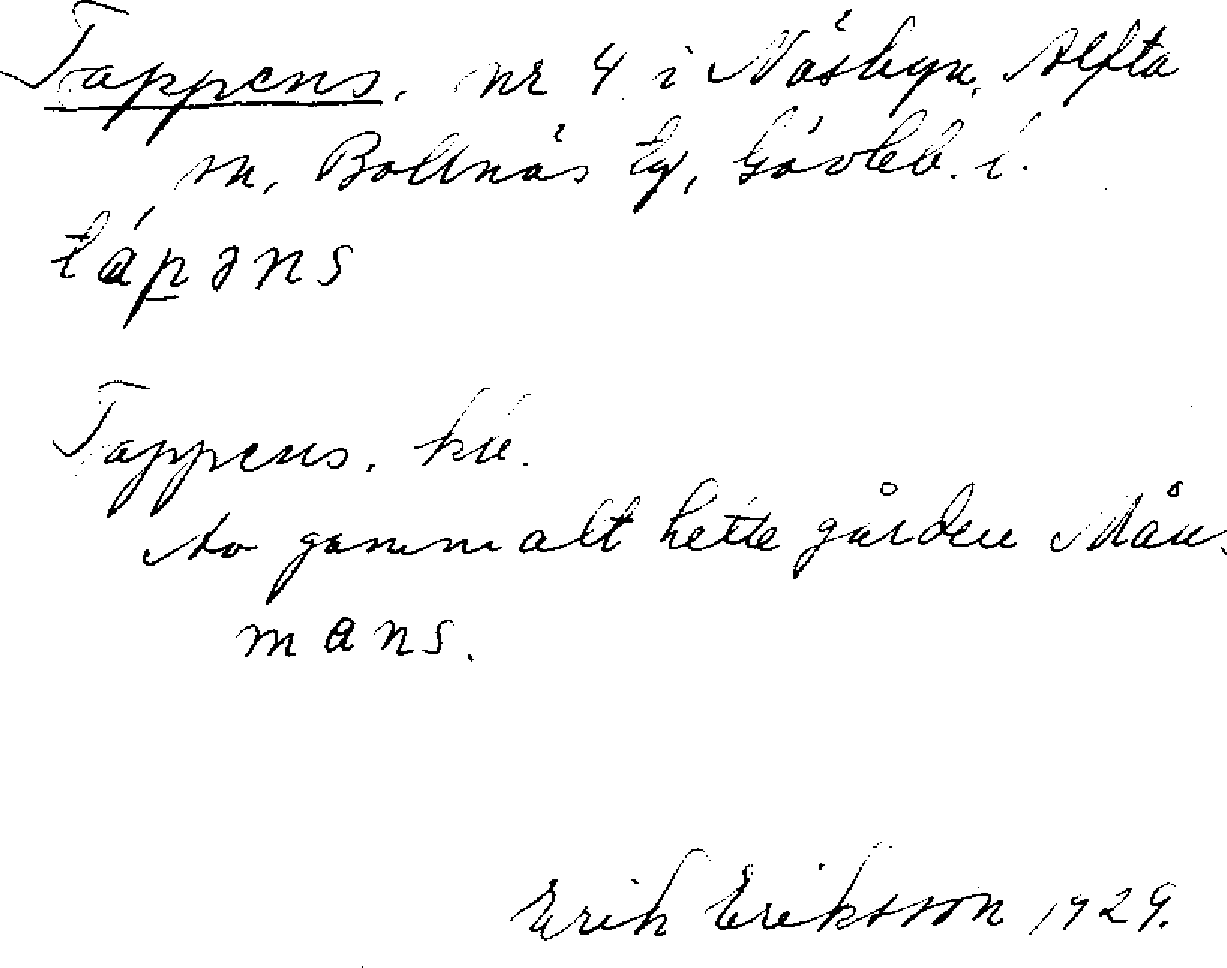 Tappens. nr 4 i Näsbyn. Alfta
sn, Bollnäs tg, Gävleb. l.
tápəns
Tappens.
Av gammalt hette gården Mån-
mans.
Erik Eriksson 1929.